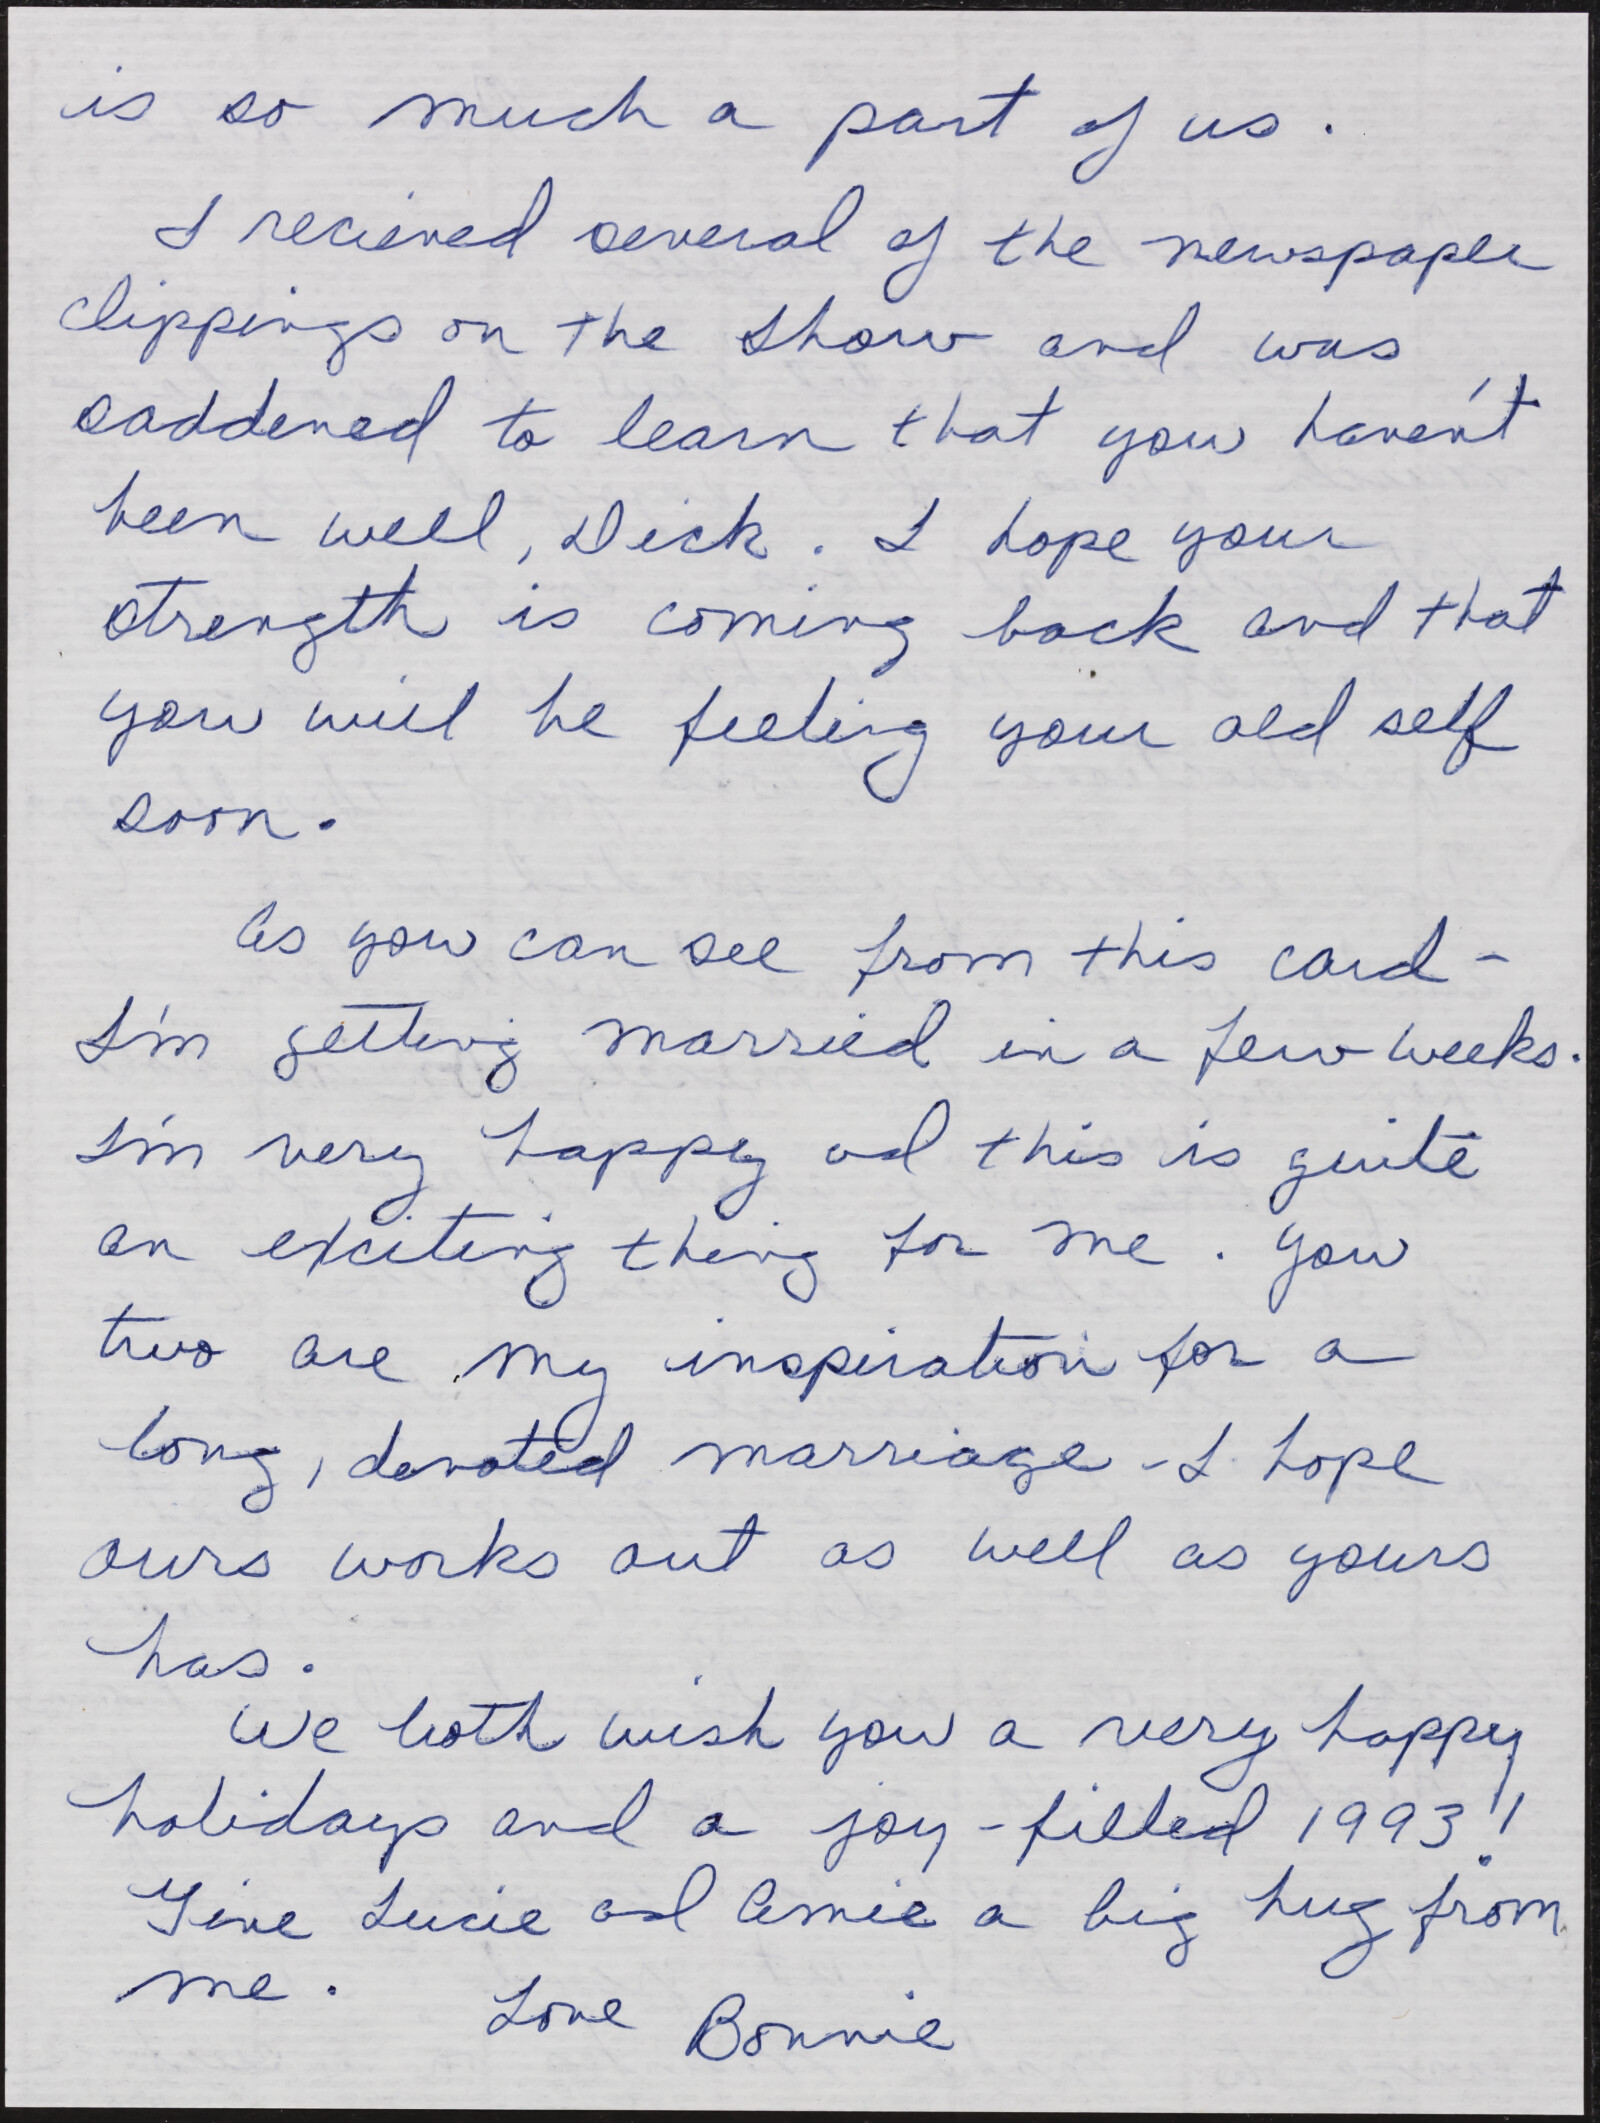 is so much a part of us.
I recieved several of the newspaper
clippings on the show and was
saddened to learn that you haven't
been well, Dick. I hope your
strength is coming back and that
you will be feeling your old self
soon.
As you can see from this card -
I'm getting married in a few weeks.
I'm very happy and this is quite
an exciting thing for me. You
two are my inspiration for a
long, devoted marriage - I hope
ours works out as well as yours
has.
We both wish you a very happy
holidays and a joy-filled 1993!
Give Lucie and Amie a big hug from
me.
Love Bonnie